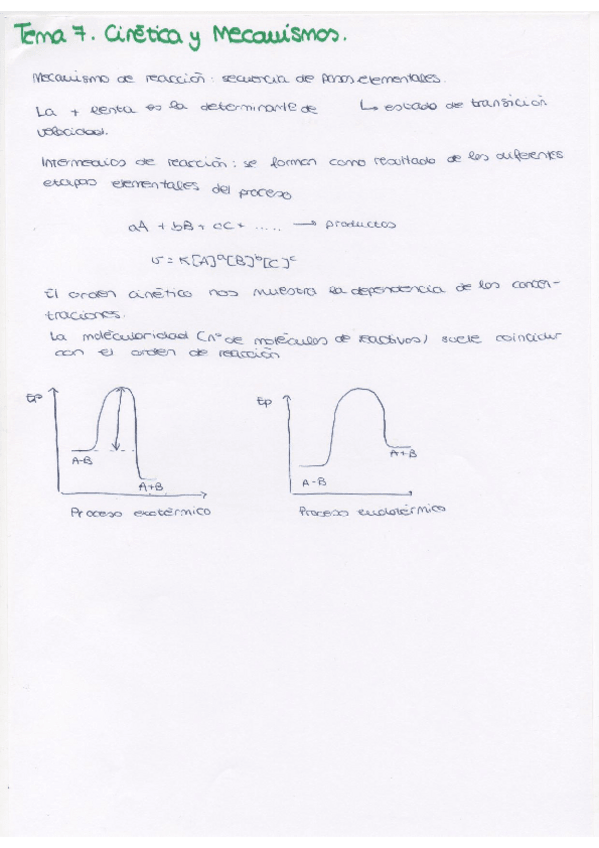 Tema 7. Cinética y Mecanismos.
Mecanismo de reacción: secuencia de pasos elementales.
La + lenta es la determinante de ↳ estado de transición
velocidad.
Intermedios de reacción: se forman como resultado de las diferentes
etapas elementales del proceso
aA + bB + cC + ..... → productos
v = K[A]ᵃ[B]ᵇ[C]ᶜ
El orden cinético nos muestra la dependencia de las concen-
traciones.
La molecularidad (nº de moléculas de reactivos) suele coincidir
con el orden de reacción
Ep
A-B
A+B
Proceso exotérmico
Ep
A+B
A-B
Proceso endotérmico